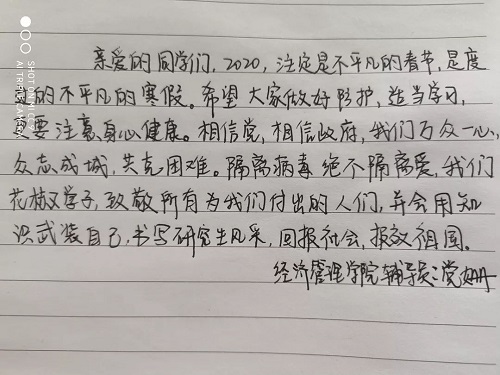 亲爱的同学们，2020，注定是不平凡的春节，是度
的不平凡的寒假。希望大家做好防护，适当学习，
更要注意身心健康。相信党，相信政府，我们万众一心，
众志成城，共克困难。隔离病毒绝不隔离爱，我们
花椒学子，致敬所有为我们付出的人们，并会用知
识武装自己，书写研究生风采，回报社会，报效祖国。
经济管理学院辅导员：党姗
SHOT ON MI CC9
AI TRIPLE CAMERA